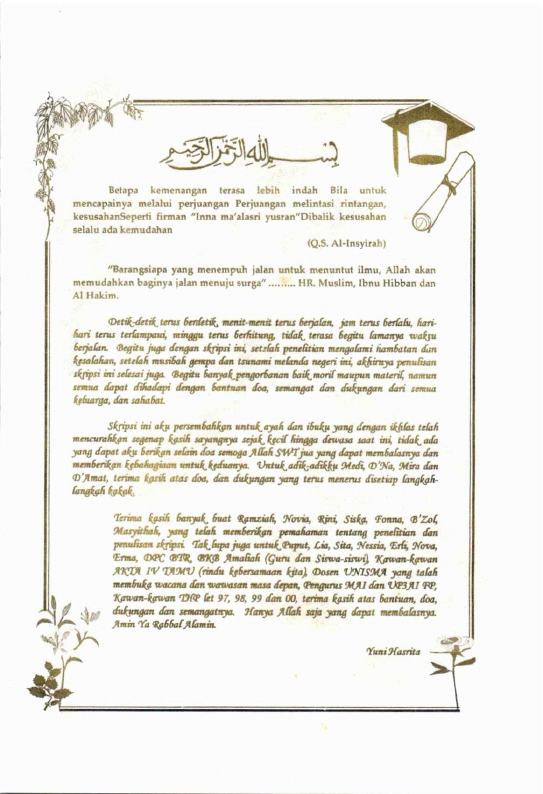 بسم الله الرحمن الرحيم
Betapa kemenangan terasa lebih indah Bila untuk
mencapainya melalui perjuangan Perjuangan melintasi rintangan,
kesusahanSeperti firman "Inna ma'alasri yusran"Dibalik kesusahan
selalu ada kemudahan
(Q.S. Al-Insyirah)
"Barangsiapa yang menempuh jalan untuk menuntut ilmu, Allah akan
memudahkan baginya jalan menuju surga" ......... HR. Muslim, Ibnu Hibban dan
Al Hakim.
Detik-detik terus berdetik, menit-menit terus berjalan, jam terus berlalu, hari-
hari terus terlampaui, minggu terus berhitung, tidak terasa begitu lamanya waktu
berjalan. Begitu juga dengan skripsi ini, setelah penelitian mengalami hambatan dan
kesalahan, setelah musibah gempa dan tsunami melanda negeri ini, akhirnya penulisan
skripsi ini selesai juga. Begitu banyak pengorbanan baik moril maupun materil, namun
semua dapat dihadapi dengan bantuan doa, semangat dan dukungan dari semua
keluarga, dan sahabat.
Skripsi ini aku persembahkan untuk ayah dan ibuku yang dengan ikhlas telah
mencurahkan segenap kasih sayangnya sejak kecil hingga dewasa saat ini, tidak ada
yang dapat aku berikan selain doa semoga Allah SWT jua yang dapat membalasnya dan
memberikan kebahagiaan untuk keduanya. Untuk adik-adikku Medi, D'Na, Mira dan
D'Amat, terima kasih atas doa, dan dukungan yang terus menerus disetiap langkah-
langkah kakak.
Terima kasih banyak buat Ramziah, Novia, Rini, Siska, Fonna, B'Zol,
Masyithah, yang telah memberikan pemahaman tentang penelitian dan
penulisan skripsi. Tak lupa juga untuk Puput, Lia, Sita, Nessia, Erli, Nova,
Erma, DPC BTR, BKB Amaliah (Guru dan Siswa-siswi), Kawan-kawan
AKTA IV TAMU (rindu kebersamaan kita), Dosen UNISMA yang talah
membuka wacana dan wawasan masa depan, Pengurus MAI dan UP3AI FP,
Kawan-kawan THP let 97, 98, 99 dan 00, terima kasih atas bantuan, doa,
dukungan dan semangatnya. Hanya Allah saja yang dapat membalasnya.
Amin Ya Rabbal Alamin.
Yuni Hasrita